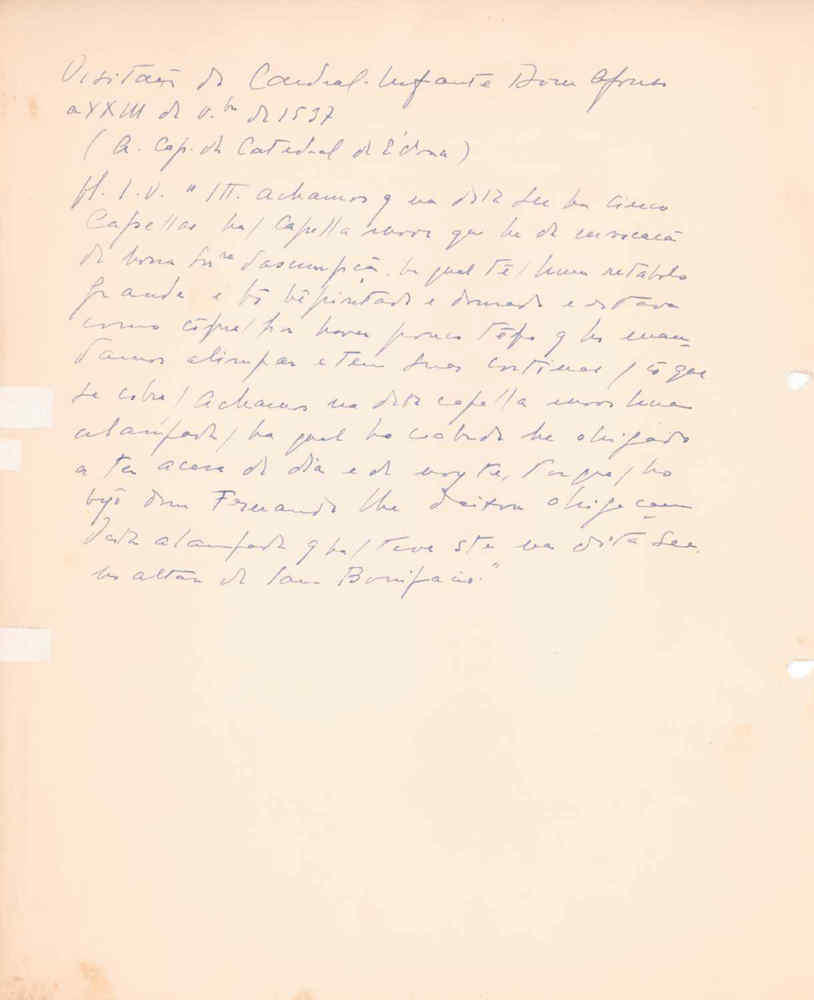 Visitação do Cardeal-Infante Dom Afonso
a XXIII de 9.bro de 1537
(A. Cap. da Catedral de Évora)
fl. 1.v. "It. achamos q na dita See ha cinco
Capellas ha / Capella moor que he da invocacã
de nossa Snra dasumpçã. ha qual tẽ / huum retabolo
grande e bõ bẽ pintado e dourado e estava
como / por haver pouco tẽpo q ho man-
damos alimpar e tem suas cortinas / cõ que
se cobre / Achamos na dita capella moor huua
alampada / ha qual ho cabido he obrigado
a ter acesa de dia e de noyte, / ho
bpõ dom Fernando lhe deixou obrigaçam
desta alampada q ha / teve na dita See.
no altar de Sam Bonifacio."